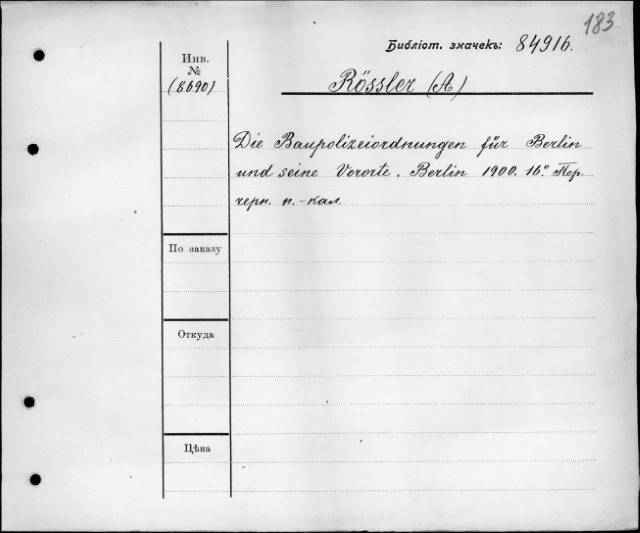 183
Библіот. значекъ: 84916.
Инв.
№
(8690)
Rössler (A)
Die Baupolizeiordnungen für Berlin
und seine Vororte. Berlin 1900. 16º Пер.
черн. п.-кал.
По заказу
Откуда
Цѣна